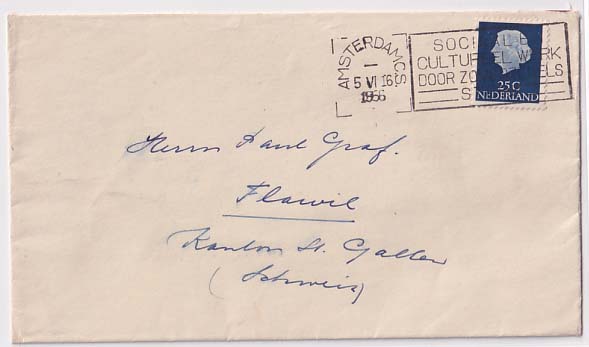 AMSTERDAM C.S.
5 VI 16
1956
SOCIALE
CULTUREEL WERK
DOOR ZOMERZEGELS
25 C
NEDERLAND
Herrn Paul Graf.
Flawil
Kanton St. Gallen
(Schweiz)